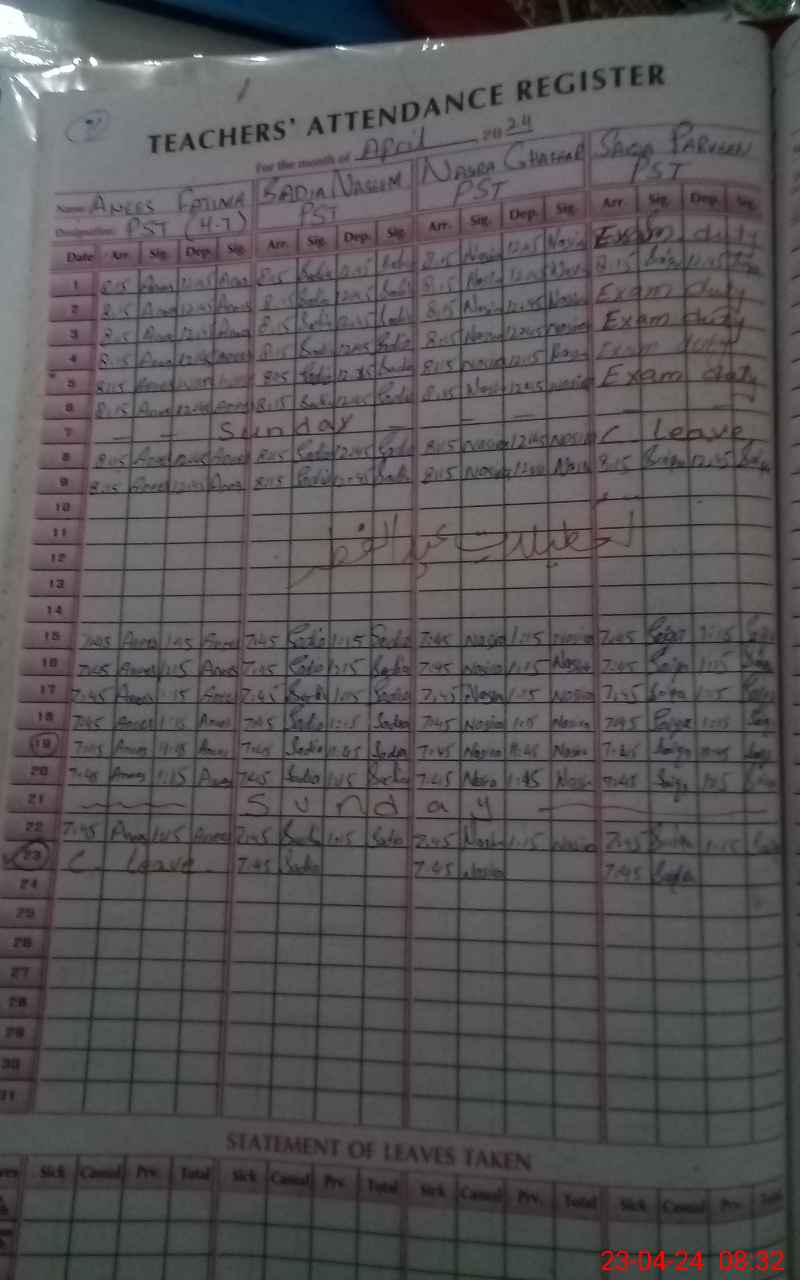 TEACHERS' ATTENDANCE REGISTER
For the month of April 2024
Name ANEES FATIMA SADIA NASEEM NASRA GHAFFAR SAIQA PARVEEN
Designation PST (H-T) PST PST PST
Date Arr. Sig. Dep. Sig. Arr. Sig. Dep. Sig. Arr. Sig. Dep. Sig. Arr. Sig. Dep. Sig.
Exam duty
1 8:15 Anees 12:45 Anees 8:15 Sadia 12:45 Sadia 8:15 Nasia 12:45 Nasia 8:15 Saiqa 12:45 Saiqa
2 8:15 Anees 12:45 Anees 8:15 Sadia 12:45 Sadia 8:15 Nasia 12:45 Nasia Exam duty
3 8:15 Anees 12:45 Anees 8:15 Sadia 12:45 Sadia 8:15 Nasia 12:45 Nasia Exam duty
4 8:15 Anees 12:45 Anees 8:15 Sadia 12:45 Sadia 8:15 Nasia 12:45 Nasia Exam duty
5 8:15 Anees 8:15 Sadia 8:15 Nasia 12:15 Exam duty
6 8:15 Anees 12:45 Anees 8:15 Sadia 12:45 Sadia 8:15 Nasia 12:45 Nasia
7 – – Sunday – – – – –
8 8:15 Anees 12:45 Anees 8:15 Sadia 12:45 Sadia 8:15 Nasia 12:45 Nasia C. leave
9 8:15 Anees 12:45 Anees 8:15 Sadia 12:45 Sadia 8:15 Nasia 12:45 Nasia 8:15 Saiqa 12:45 Saiqa
10
11 تعطیلات عید الفطر
12
13
14
15 7:45 Anees 1:15 Anees 7:45 Sadia 1:15 Sadia 7:45 Nasia 1:15 Nasia 7:45 Saiqa 1:15 Saiqa
16 7:45 Anees 1:15 Anees 7:45 Sadia 1:15 Sadia 7:45 Nasia 1:15 Nasia 7:45 Saiqa 1:15 Saiqa
17 7:45 Anees 1:15 Anees 7:45 Sadia 1:15 Sadia 7:45 Nasia 1:15 Nasia 7:45 Saiqa 1:15 Saiqa
18 7:45 Anees 1:15 Anees 7:45 Sadia 1:15 Sadia 7:45 Nasia 1:15 Nasia 7:45 Saiqa 1:15 Saiqa
19 7:45 Anees 11:45 Anees 7:45 Sadia 11:45 Sadia 7:45 Nasia 11:45 Nasia 7:45 Saiqa 11:45 Saiqa
20 7:45 Anees 1:15 Anees 7:45 Sadia 1:15 Sadia 7:45 Nasia 1:15 Nasia 7:45 Saiqa 1:15 Saiqa
21 Sunday
22 7:45 Anees 1:15 Anees 7:45 Sadia 1:15 Sadia 7:45 Nasia 1:15 Nasia 7:45 Saiqa 1:15 Saiqa
23 C. Leave. 7:45 Sadia 7:45 Nasia 7:45 Saiqa
24
25
26
27
28
29
30
31
STATEMENT OF LEAVES TAKEN
Sick Casual Prv. Total Sick Casual Prv. Total Sick Casual Prv. Total Sick Casual Prv. Total
23-04-24 08:32